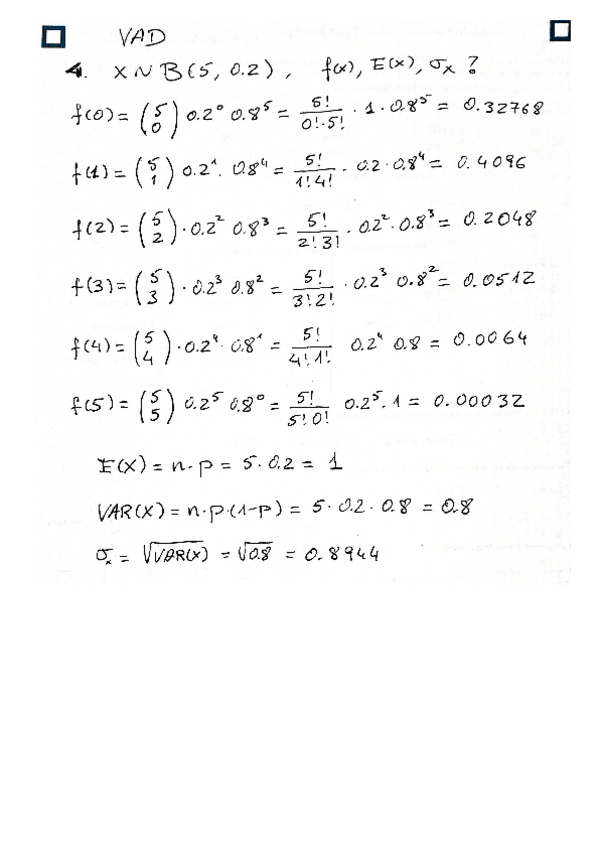 VAD
4. X ~ B(5, 0.2), f(x), E(x), σₓ ?
f(0) = (5 0) 0.2⁰ 0.8⁵ = 5!/0!·5! · 1 · 0.8⁵ = 0.32768
f(1) = (5 1) 0.2¹. 0.8⁴ = 5!/1!4! · 0.2 · 0.8⁴ = 0.4096
f(2) = (5 2) · 0.2² 0.8³ = 5!/2!3! · 0.2² · 0.8³ = 0.2048
f(3) = (5 3) · 0.2³ 0.8² = 5!/3!2! · 0.2³ 0.8² = 0.0512
f(4) = (5 4) · 0.2⁴ 0.8¹ = 5!/4!1! 0.2⁴ 0.8 = 0.0064
f(5) = (5 5) 0.2⁵ 0.8⁰ = 5!/5!0! 0.2⁵. 1 = 0.00032
E(X) = n·p = 5·0.2 = 1
VAR(X) = n·p·(1-p) = 5·0.2·0.8 = 0.8
σₓ = √VAR(X) = √0.8 = 0.8944